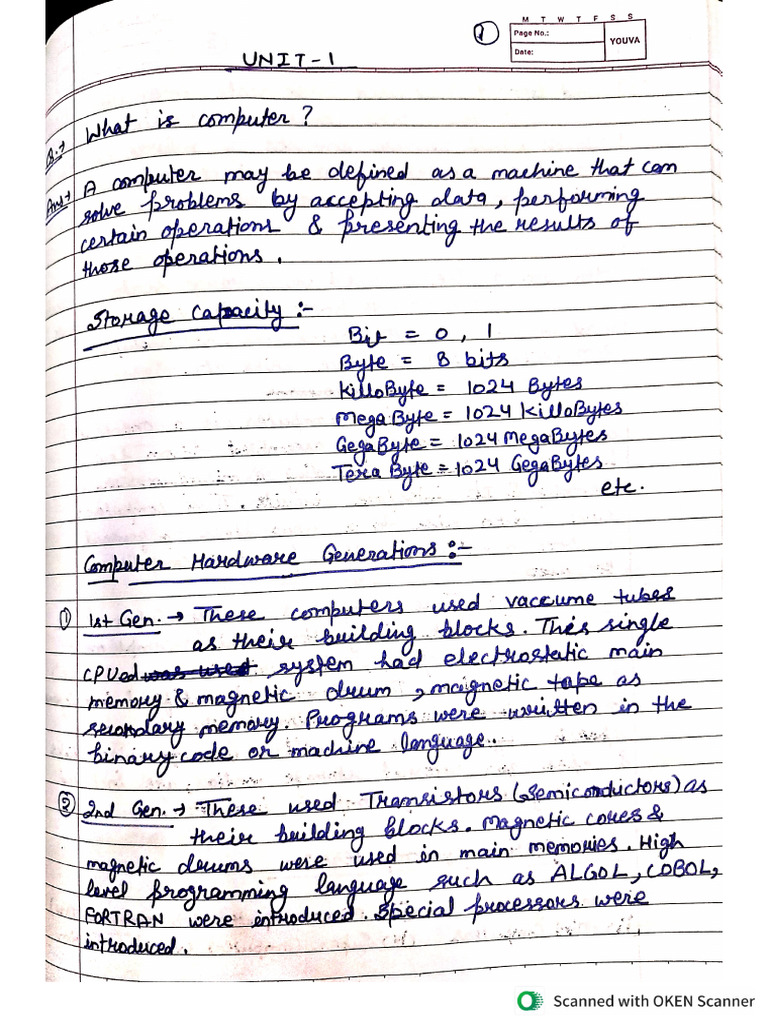 1
M T W T F S S
Page No.:
Date:
YOUVA
UNIT-1
Q.→ What is computer?
Ans→ A computer may be defined as a machine that can
solve problems by accepting data, performing
certain operations & presenting the results of
those operations.
Storage Capacity :-
Bit = 0, 1
Byte = 8 bits
KilloByte = 1024 Bytes
MegaByte = 1024 KilloBytes
GegaByte = 1024 MegaBytes
Tera Byte = 1024 GegaBytes
etc.
Computer Hardware Generations :-
① 1st Gen. → These computers used vaccume tubes
as their building blocks. This single
CPUed was used system had electrostatic main
memory & magnetic drum, magnetic tape as
secondary memory. Programs were written in the
binary code or machine language.
② 2nd Gen. → These used Transistors (semiconductors) as
their building blocks. Magnetic cores &
magnetic drums were used in main memories. High
level programming language such as ALGOL, COBOL,
FORTRAN were introduced. Special processors were
introduced.
Scanned with OKEN Scanner